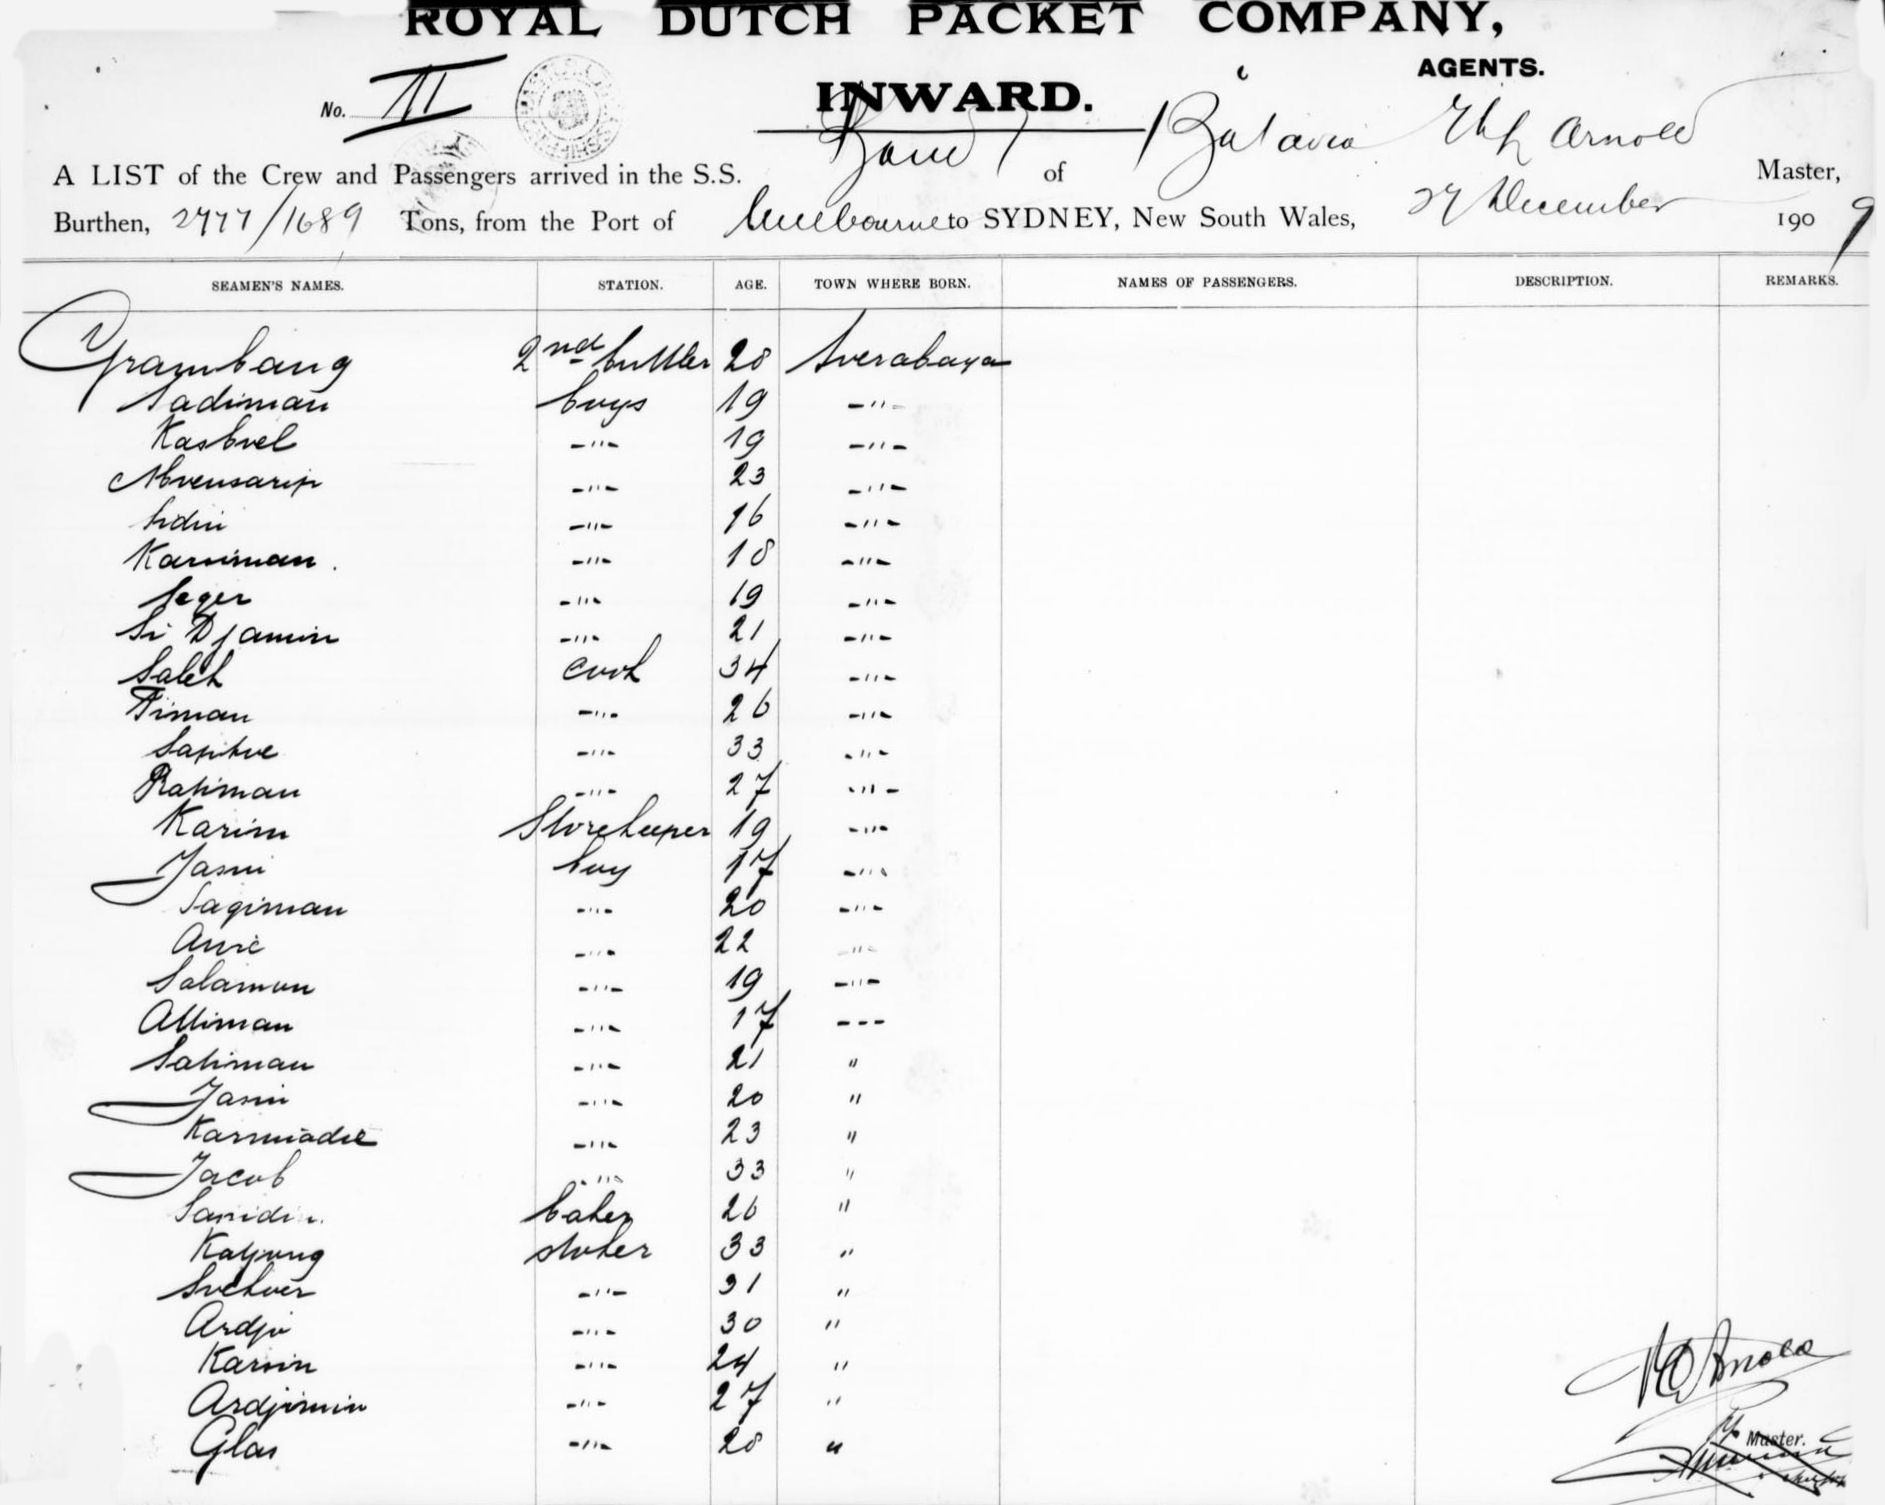 ROYAL DUTCH PACKET COMPANY,
AGENTS.
No. II
INWARD.
A LIST of the Crew and Passengers arrived in the S.S. of Batavia Arnold Master,
Burthen, 2777/1689 Tons, from the Port of Melbourne to SYDNEY, New South Wales, 27 December 1909
SEAMEN'S NAMES. STATION. AGE. TOWN WHERE BORN. NAMES OF PASSENGERS. DESCRIPTION. REMARKS.
Grambang 2nd buttler 28 Soerabaya
Sadiman boys 19 -"-
Kasboel -"- 19 -"-
Moensarip -"- 23 -"-
Sidin -"- 16 -"-
Karsiman. -"- 18 -"-
Seger -"- 19 -"-
Si Djamin -"- 21 -"-
Saleh cook 34 -"-
Timan -"- 26 -"-
-"- 33 -"-
Ratiman -"- 27 -"-
Karim Storekeeper 19 -"-
Jasin boy 17 -"-
Sagiman -"- 20 -"-
-"- 22 -"-
Salamon -"- 19 -"-
Attiman -"- 17 ---
Satiman -"- 21 "
Jasin -"- 20 "
Karsmadie -"- 23 "
Jacob -"- 33 "
Saridin. baker 26 "
Katjong stoker 33 "
-"- 31 "
Ardjo -"- 30 "
Karsin -"- 24 "
Ardjimin -"- 27 "
Glas -"- 28 "
Arnold
Master.